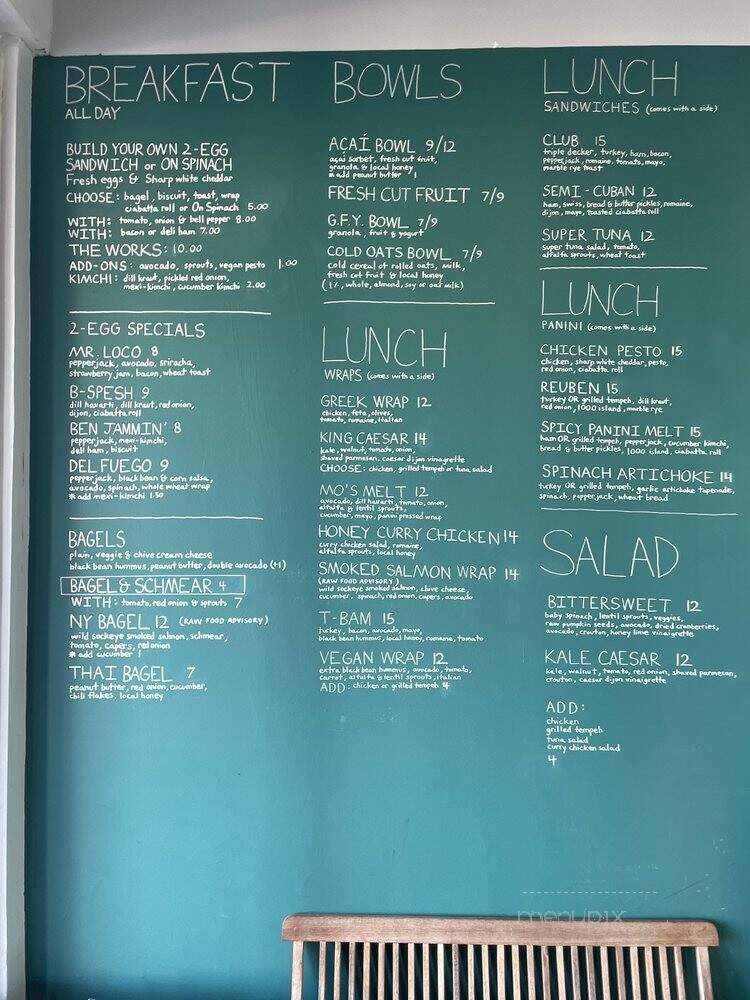 BREAKFAST
ALL DAY
BUILD YOUR OWN 2-EGG
SANDWICH or ON SPINACH
Fresh eggs & Sharp white cheddar
CHOOSE: bagel, biscuit, toast, wrap
ciabatta roll or On Spinach 5.00
WITH: tomato, onion & bell pepper 8.00
WITH: bacon or deli ham 7.00
THE WORKS: 10.00
ADD-ONS: avocado, sprouts, vegan pesto 1.00
KIMCHI: dill kraut, pickled red onion,
mexi-kimchi, cucumber kimchi 2.00
2-EGG SPECIALS
MR. LOCO 8
pepperjack, avocado, sriracha,
strawberry jam, bacon, wheat toast
B-SPESH 9
dill havarti, dill kraut, red onion,
dijon, ciabatta roll
BEN JAMMIN' 8
pepperjack, mexi-kimchi,
deli ham, biscuit
DEL FUEGO 9
pepperjack, black bean & corn salsa,
avocado, spinach, whole wheat wrap
* add mexi-kimchi 1.50
BAGELS
plain, veggie & chive cream cheese
black bean hummus, peanut butter, double avocado (+1)
BAGEL & SCHMEAR 4
WITH: tomato, red onion & sprouts 7
NY BAGEL 12 (RAW FOOD ADVISORY)
wild sockeye smoked salmon, schmear,
tomato, capers, red onion
* add cucumber 1
THAI BAGEL 7
peanut butter, red onion, cucumber,
chili flakes, local honey
BOWLS
AÇAÍ BOWL 9/12
açai sorbet, fresh cut fruit,
granola & local honey
* add peanut butter 1
FRESH CUT FRUIT 7/9
G.F.Y. BOWL 7/9
granola, fruit & yogurt
COLD OATS BOWL 7/9
cold cereal of rolled oats, milk,
fresh cut fruit & local honey
(1%, whole, almond, soy or oat milk)
LUNCH
WRAPS (comes with a side)
GREEK WRAP 12
chicken, feta, olives,
tomato, romaine, italian
KING CAESAR 14
kale, walnut, tomato, onion,
shaved parmesan, caesar dijon vinaigrette
CHOOSE: chicken, grilled tempeh or tuna salad
MO'S MELT 12
avocado, dill havarti, tomato, onion,
alfalfa & lentil sprouts,
cucumber, mayo, panini pressed wrap
HONEY CURRY CHICKEN 14
curry chicken salad, romaine,
alfalfa sprouts, local honey
SMOKED SALMON WRAP 14
(RAW FOOD ADVISORY)
wild sockeye smoked salmon, chive cheese,
cucumber, spinach, red onion, capers, avocado
T-BAM 15
turkey, bacon, avocado, mayo,
black bean hummus, local honey, romaine, tomato
VEGAN WRAP 12
extra black bean hummus, avocado, tomato,
carrot, alfalfa & lentil sprouts, italian
ADD: chicken or grilled tempeh 4
LUNCH
SANDWICHES (comes with a side)
CLUB 15
triple decker, turkey, ham, bacon,
pepperjack, romaine, tomato, mayo,
marble rye toast
SEMI-CUBAN 12
ham, swiss, bread & butter pickles, romaine,
dijon, mayo, toasted ciabatta roll
SUPER TUNA 12
super tuna salad, tomato,
alfalfa sprouts, wheat toast
LUNCH
PANINI (comes with a side)
CHICKEN PESTO 15
chicken, sharp white cheddar, pesto,
red onion, ciabatta roll
REUBEN 15
turkey OR grilled tempeh, dill kraut,
red onion, 1000 island, marble rye
SPICY PANINI MELT 15
ham OR grilled tempeh, pepperjack, cucumber kimchi,
bread & butter pickles, 1000 island, ciabatta roll
SPINACH ARTICHOKE 14
turkey OR grilled tempeh, garlic artichoke tapenade,
spinach, pepperjack, wheat bread
SALAD
BITTERSWEET 12
baby spinach, lentil sprouts, veggies,
raw pumpkin seeds, avocado, dried cranberries,
avocado, crouton, honey lime vinaigrette
KALE CAESAR 12
kale, walnut, tomato, red onion, shaved parmesan,
crouton, caesar dijon vinaigrette
ADD:
chicken
grilled tempeh
tuna salad
curry chicken salad
4
menupix